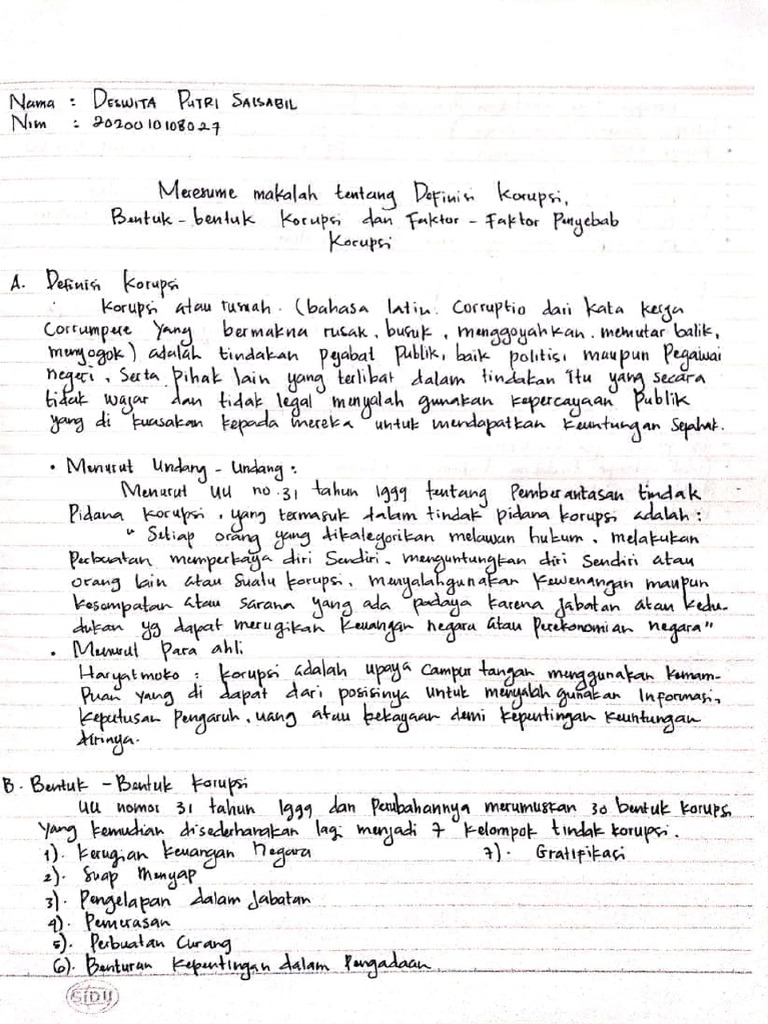 Nama : DESWITA PUTRI SALSABIL
Nim : 2020010108027
Meresume makalah tentang Definisi Korupsi,
Bentuk-bentuk Korupsi dan Faktor-Faktor Penyebab
Korupsi
A. Definisi Korupsi
Korupsi atau rusuah. (bahasa latin. Corruptio dari kata kerja
Corrumpere yang bermakna rusak, busuk, menggoyahkan. memutar balik,
menyogok) adalah tindakan pejabat Publik, baik politisi maupun Pegawai
negeri, Serta Pihak lain yang terlibat dalam tindakan Itu yang secara
tidak wajar dan tidak legal menyalah gunakan kepercayaan Publik
yang di kuasakan kepada mereka untuk mendapatkan keuntungan Sepihak.
• Menurut Undang-Undang :
Menurut UU no.31 tahun 1999 tentang Pemberantasan tindak
Pidana Korupsi, yang termasuk dalam tindak pidana korupsi adalah :
" Setiap orang yang dikategorikan melawan hukum, melakukan
Perbuatan memperkaya diri Sendiri, menguntungkan diri Sendiri atau
orang lain atau Suatu korupsi, menyalahgunakan kewenangan maupun
kesempatan atau sarana yang ada padaya karena Jabatan atau kedu-
dukan yg dapat merugikan keuangan negara atau Perekonomian negara"
• Menurut Para ahli
Haryatmoko : korupsi adalah upaya Campur tangan menggunakan kemam-
Puan yang di dapat dari posisinya untuk menyalah gunakan Informasi,
keputusan Pengaruh, uang atau kekayaan demi kepentingan keuntungan
dirinya.
B. Bentuk-Bentuk Korupsi
UU nomor 31 tahun 1999 dan Perubahannya merumuskan 30 bentuk korupsi
Yang kemudian disederhanakan lagi menjadi 7 kelompok tindak korupsi.
1). Kerugian keuangan Negara 7). Gratifikasi
2). Suap Menyap
3). Pengelapan dalam Jabatan
4). Pemerasan
5). Perbuatan Curang
6). Benturan Kepentingan dalam Pengadaan.
SIDU